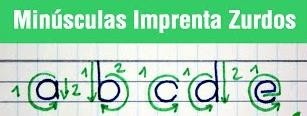 Minúsculas Imprenta Zurdos
1 a 2 1 b 2 1 c 1 d 2 1 e